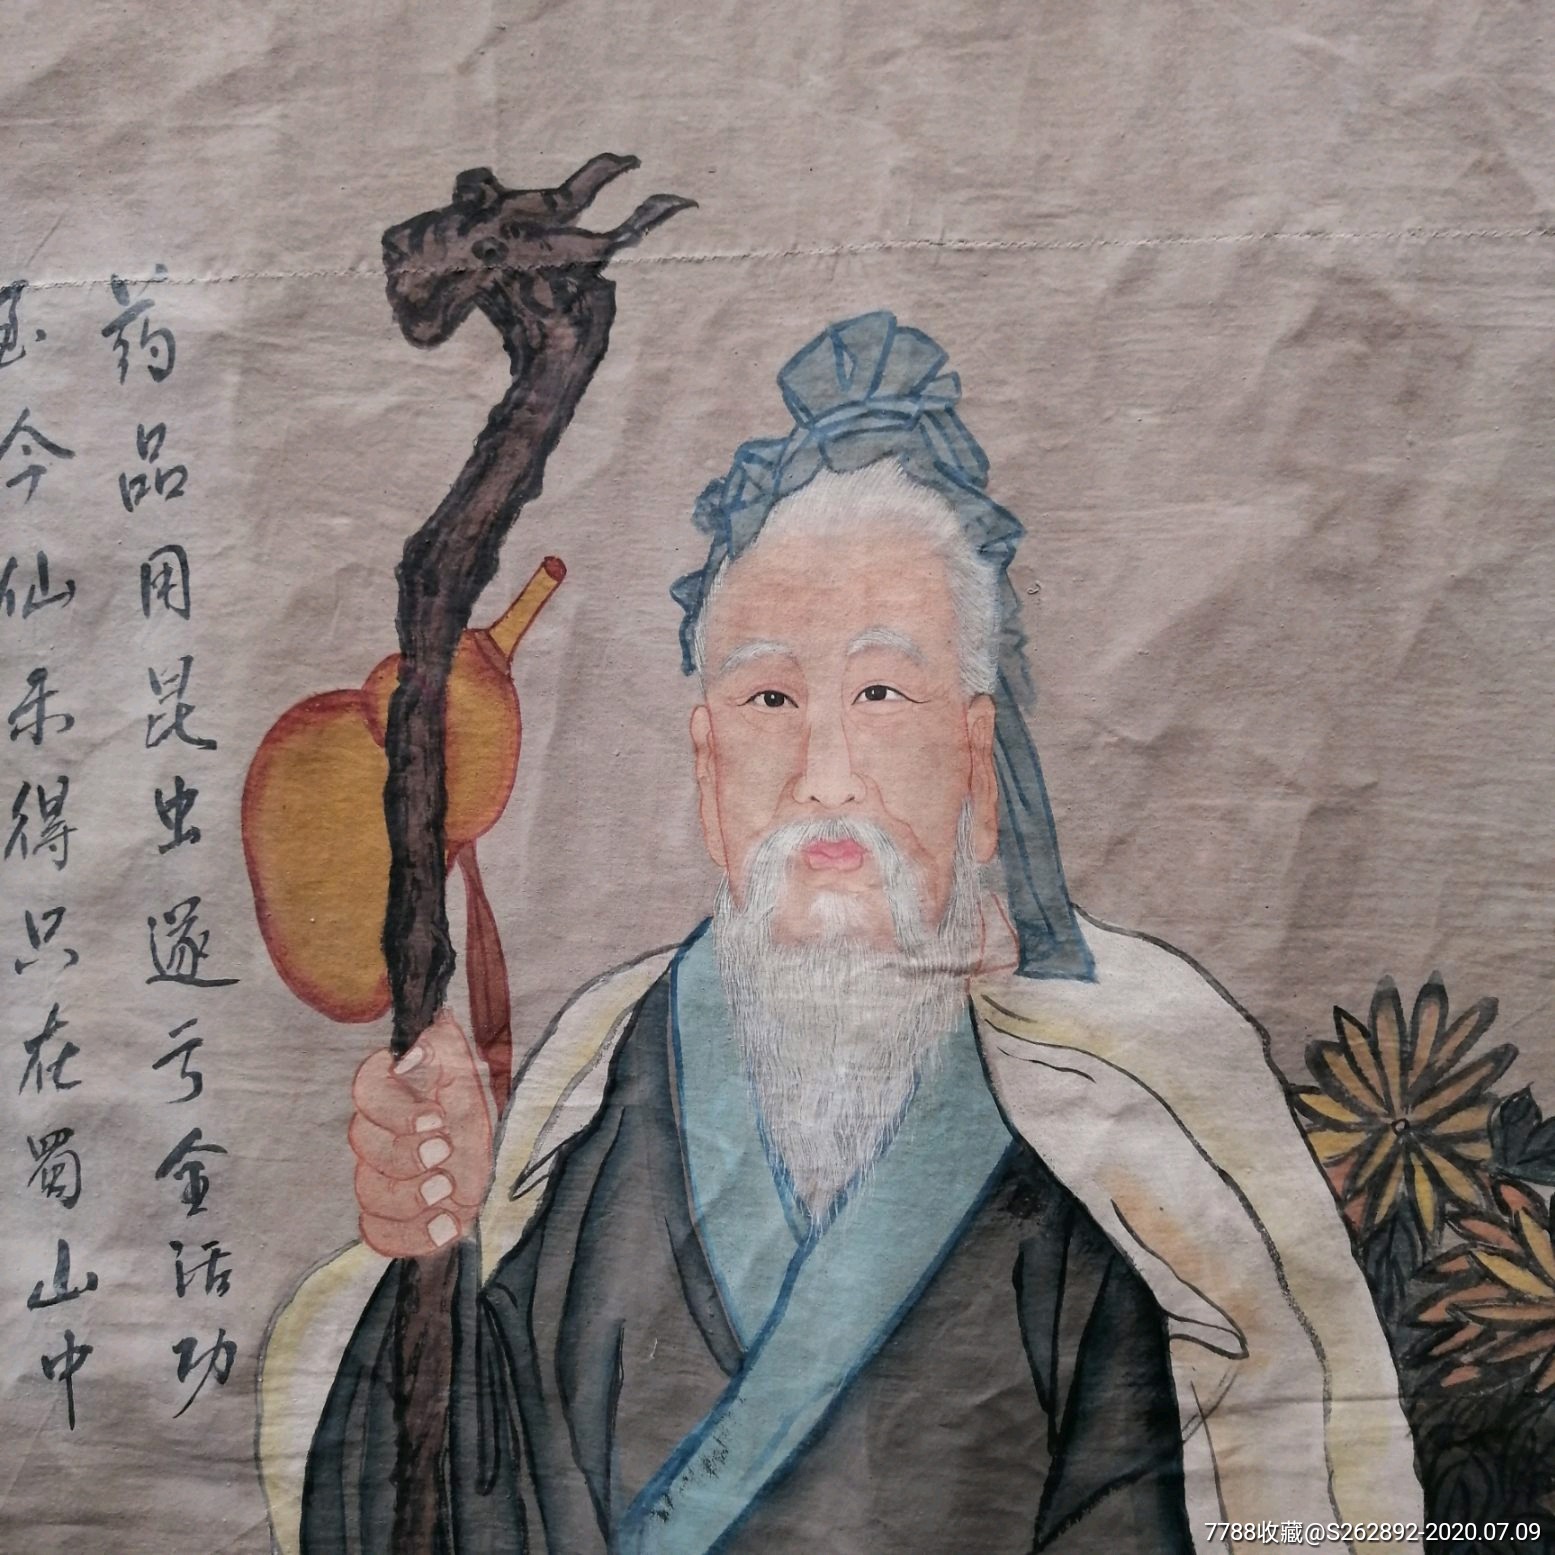 药品用昆虫遂亏全活功
至今仙乐得只在蜀山中
7788收藏@S262892-2020.07.09